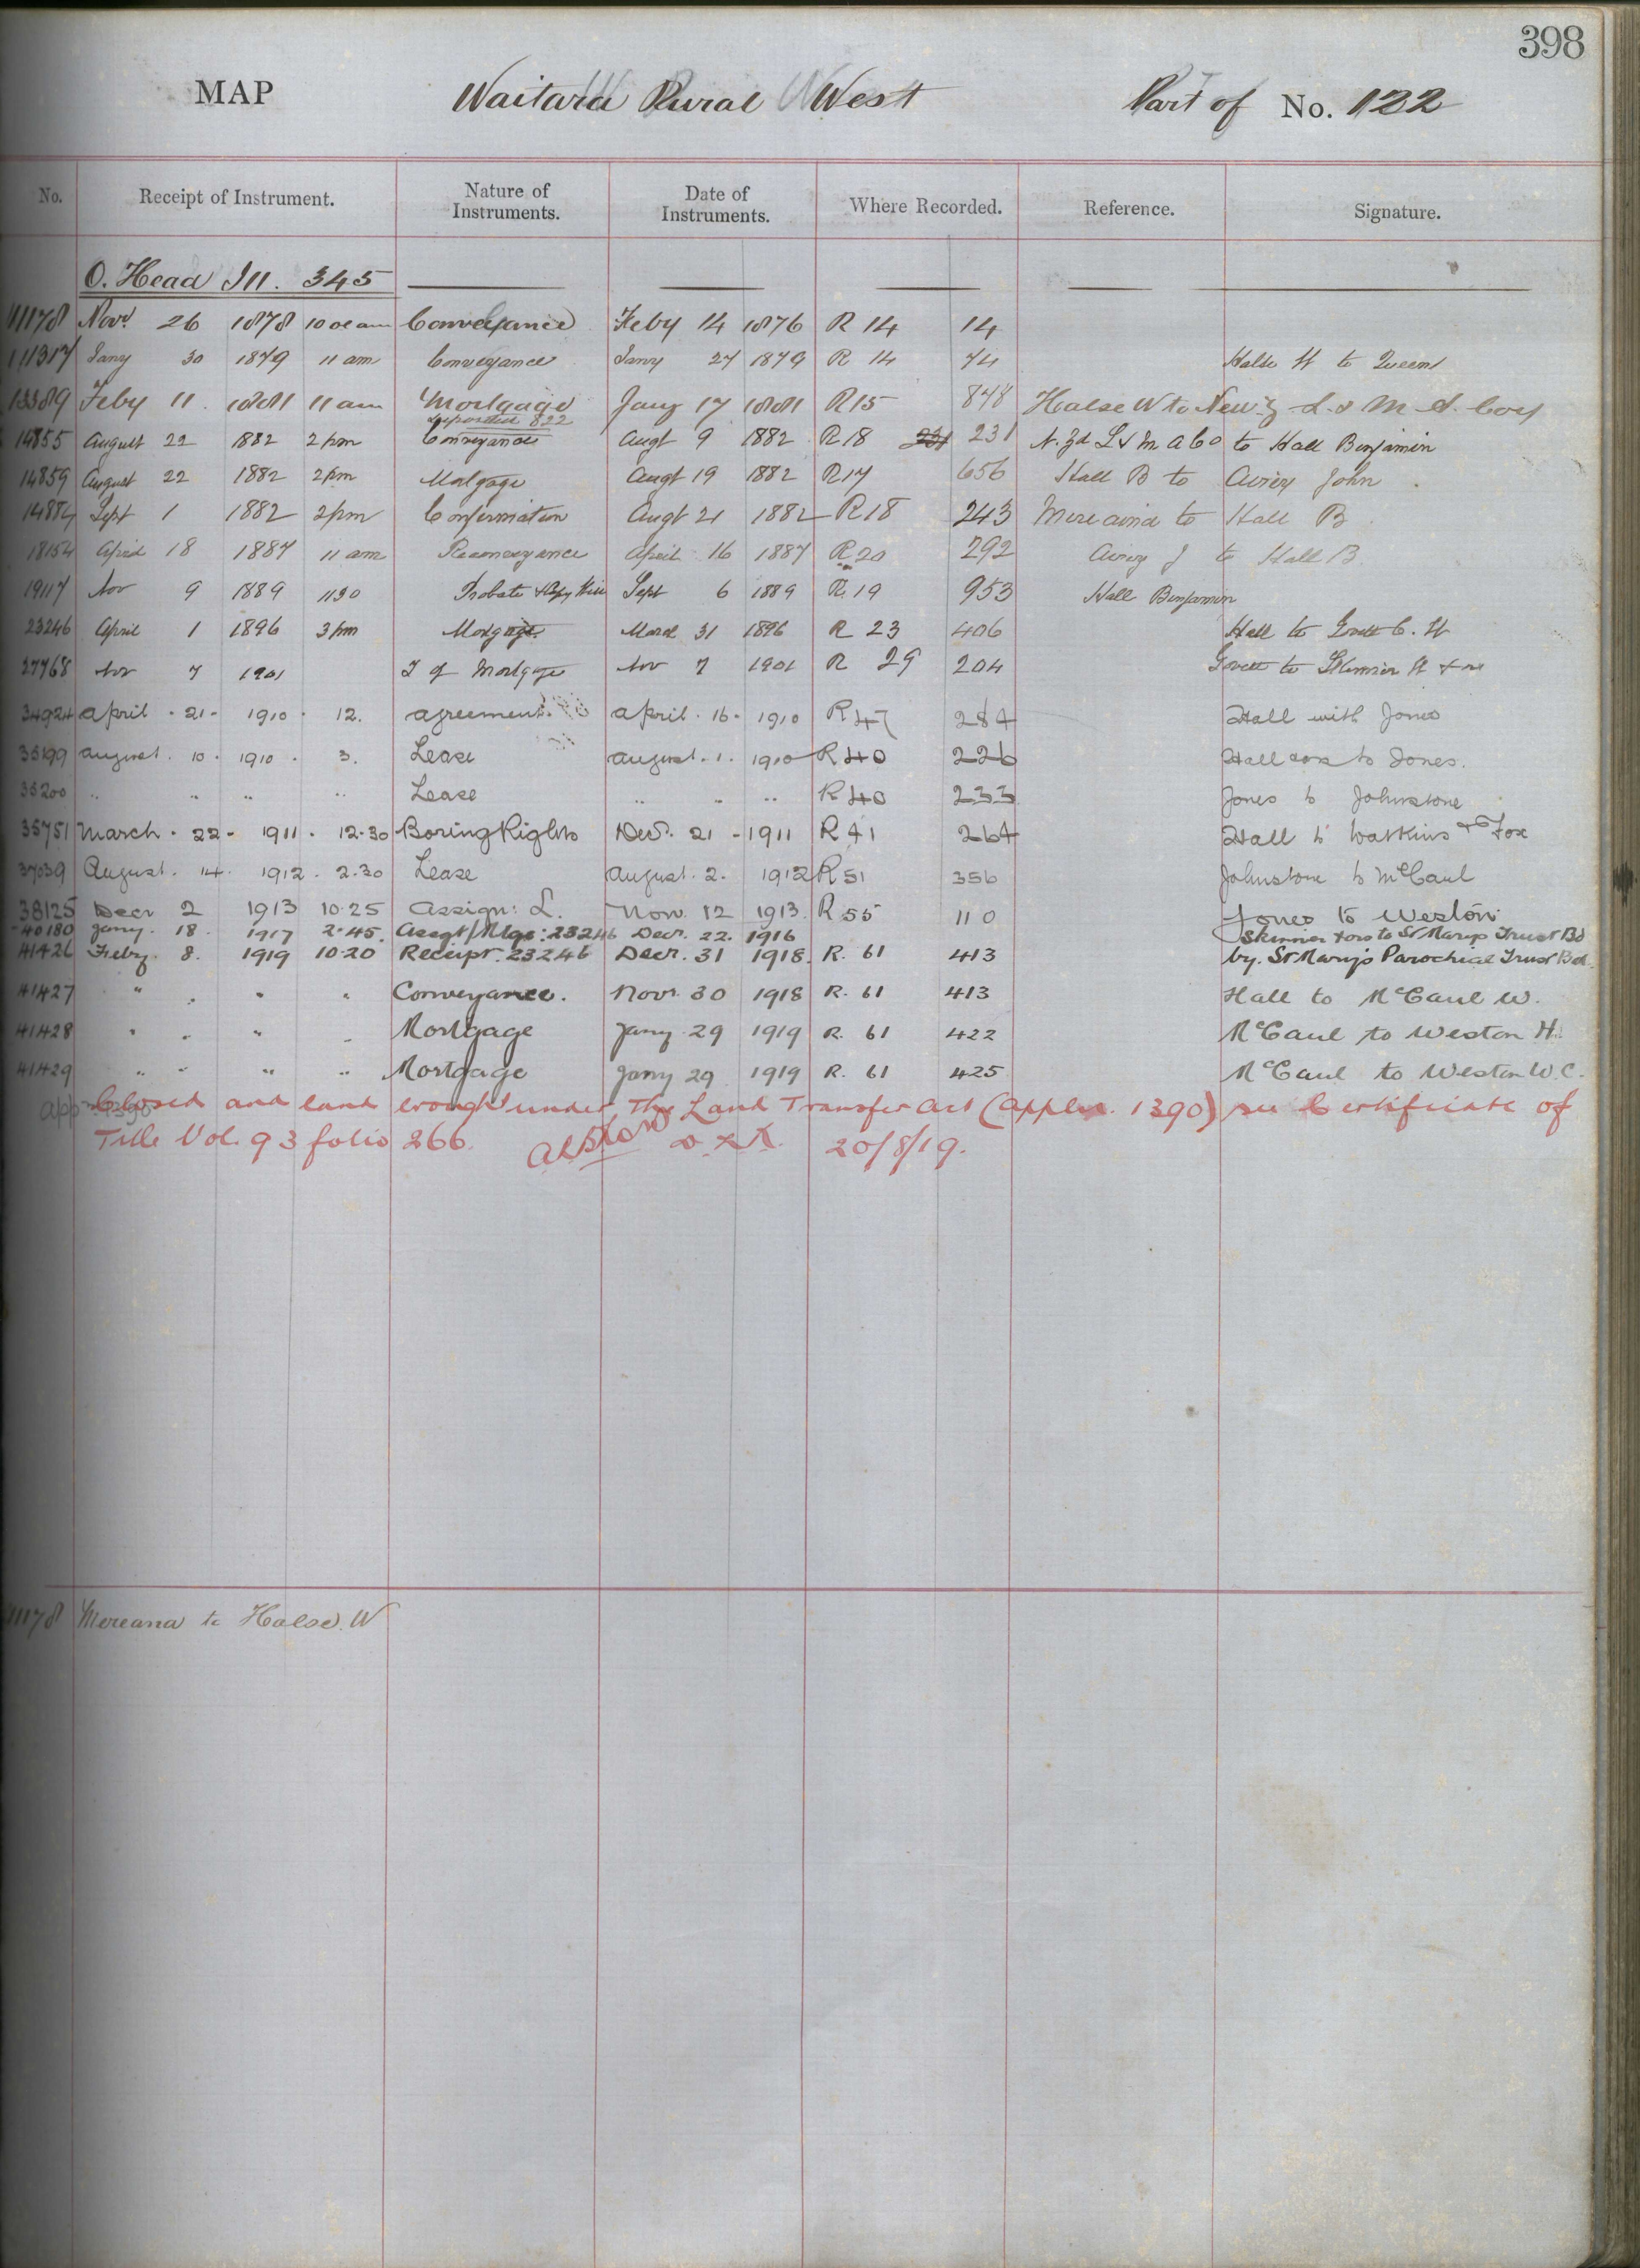 398
MAP Waitara Rural West Part of No. 122
No. Receipt of Instrument. Nature of Instruments. Date of Instruments. Where Recorded. Reference. Signature.
O. Head III. 345
11178 Novr 26 1878 10 am Conveyance Feby 14 1876 R 14 14
11317 Jany 30 1879 11 am Conveyance Jany 27 1879 R 14 74 Halse H to Queen
13389 Feby 11 1881 11 am Mortgage Jany 17 1881 R15 848 Halse W to New Z L & M A Coy
Deposited 822
14855 August 22 1882 2 pm Conveyance Augt 9 1882 R18 231 231 N. Zd L & M A Co to Hall Benjamin
14859 August 22 1882 2pm Mortgage Augt 19 1882 R17 656 Hall B to Airey John
14884 Sept 1 1882 2pm Confirmation Augt 21 1882 R18 243 Mereaina to Hall B
18154 April 18 1887 11 am Reconveyance April 16 1887 R20 292 Airey J to Hall B.
19117 Nov 9 1889 1130 Probate Will Sept 6 1889 R.19 953 Hall Benjamin
23246 April 1 1896 3 pm Mortgage March 31 1896 R 23 406 Hall to Govett C. H
27768 Nov 7 1901 T of Mortgage Nov 7 1901 R 29 204 Govett to Skinner H
34924 April. 21. 1910. 12. Agreement. April. 16. 1910 R 47 284 Hall with Jones
35199 August. 10. 1910. 3. Lease August. 1. 1910 R 40 226 Hall to Jones.
35200 .. .. .. .. Lease .. .. .. R 40 233 Jones to Johnstone
35751 March. 22. 1911. 12.30 Boring Rights Decr. 21 1911 R 41 264 Hall to Watkins & Fox
37039 August. 14. 1912. 2.30 Lease August. 2. 1912 R 51 356 Johnstone to McCaul
38125 Decr 2 1913 10.25 Assign: L. Nov. 12 1913. R 55 110 Jones to Weston.
40180 Jany. 18. 1917 2.45. Assgt/Mtge: 23246 Decr. 22. 1916 Skinner & ors to St Marys Trust Bd
41426 Feby. 8. 1919 10.20 Receipt. 23246 Decr. 31 1918. R. 61 413 by. St Mary's Parochial Trust Bd.
41427 " . " . Conveyance. Novr. 30 1918 R. 61 413 Hall to McCaul W.
41428 " . " . Mortgage Jany 29 1919 R. 61 422 McCaul to Weston H.
41429 .. .. .. .. Mortgage Jany 29 1919 R. 61 425 McCaul to Weston W. C.
Closed and land brought under The Land Transfer Act (Appln. 1390) see Certificate of
Title Vol. 93 folio 266. 20/8/19.
11178 Mereana to Halse. W